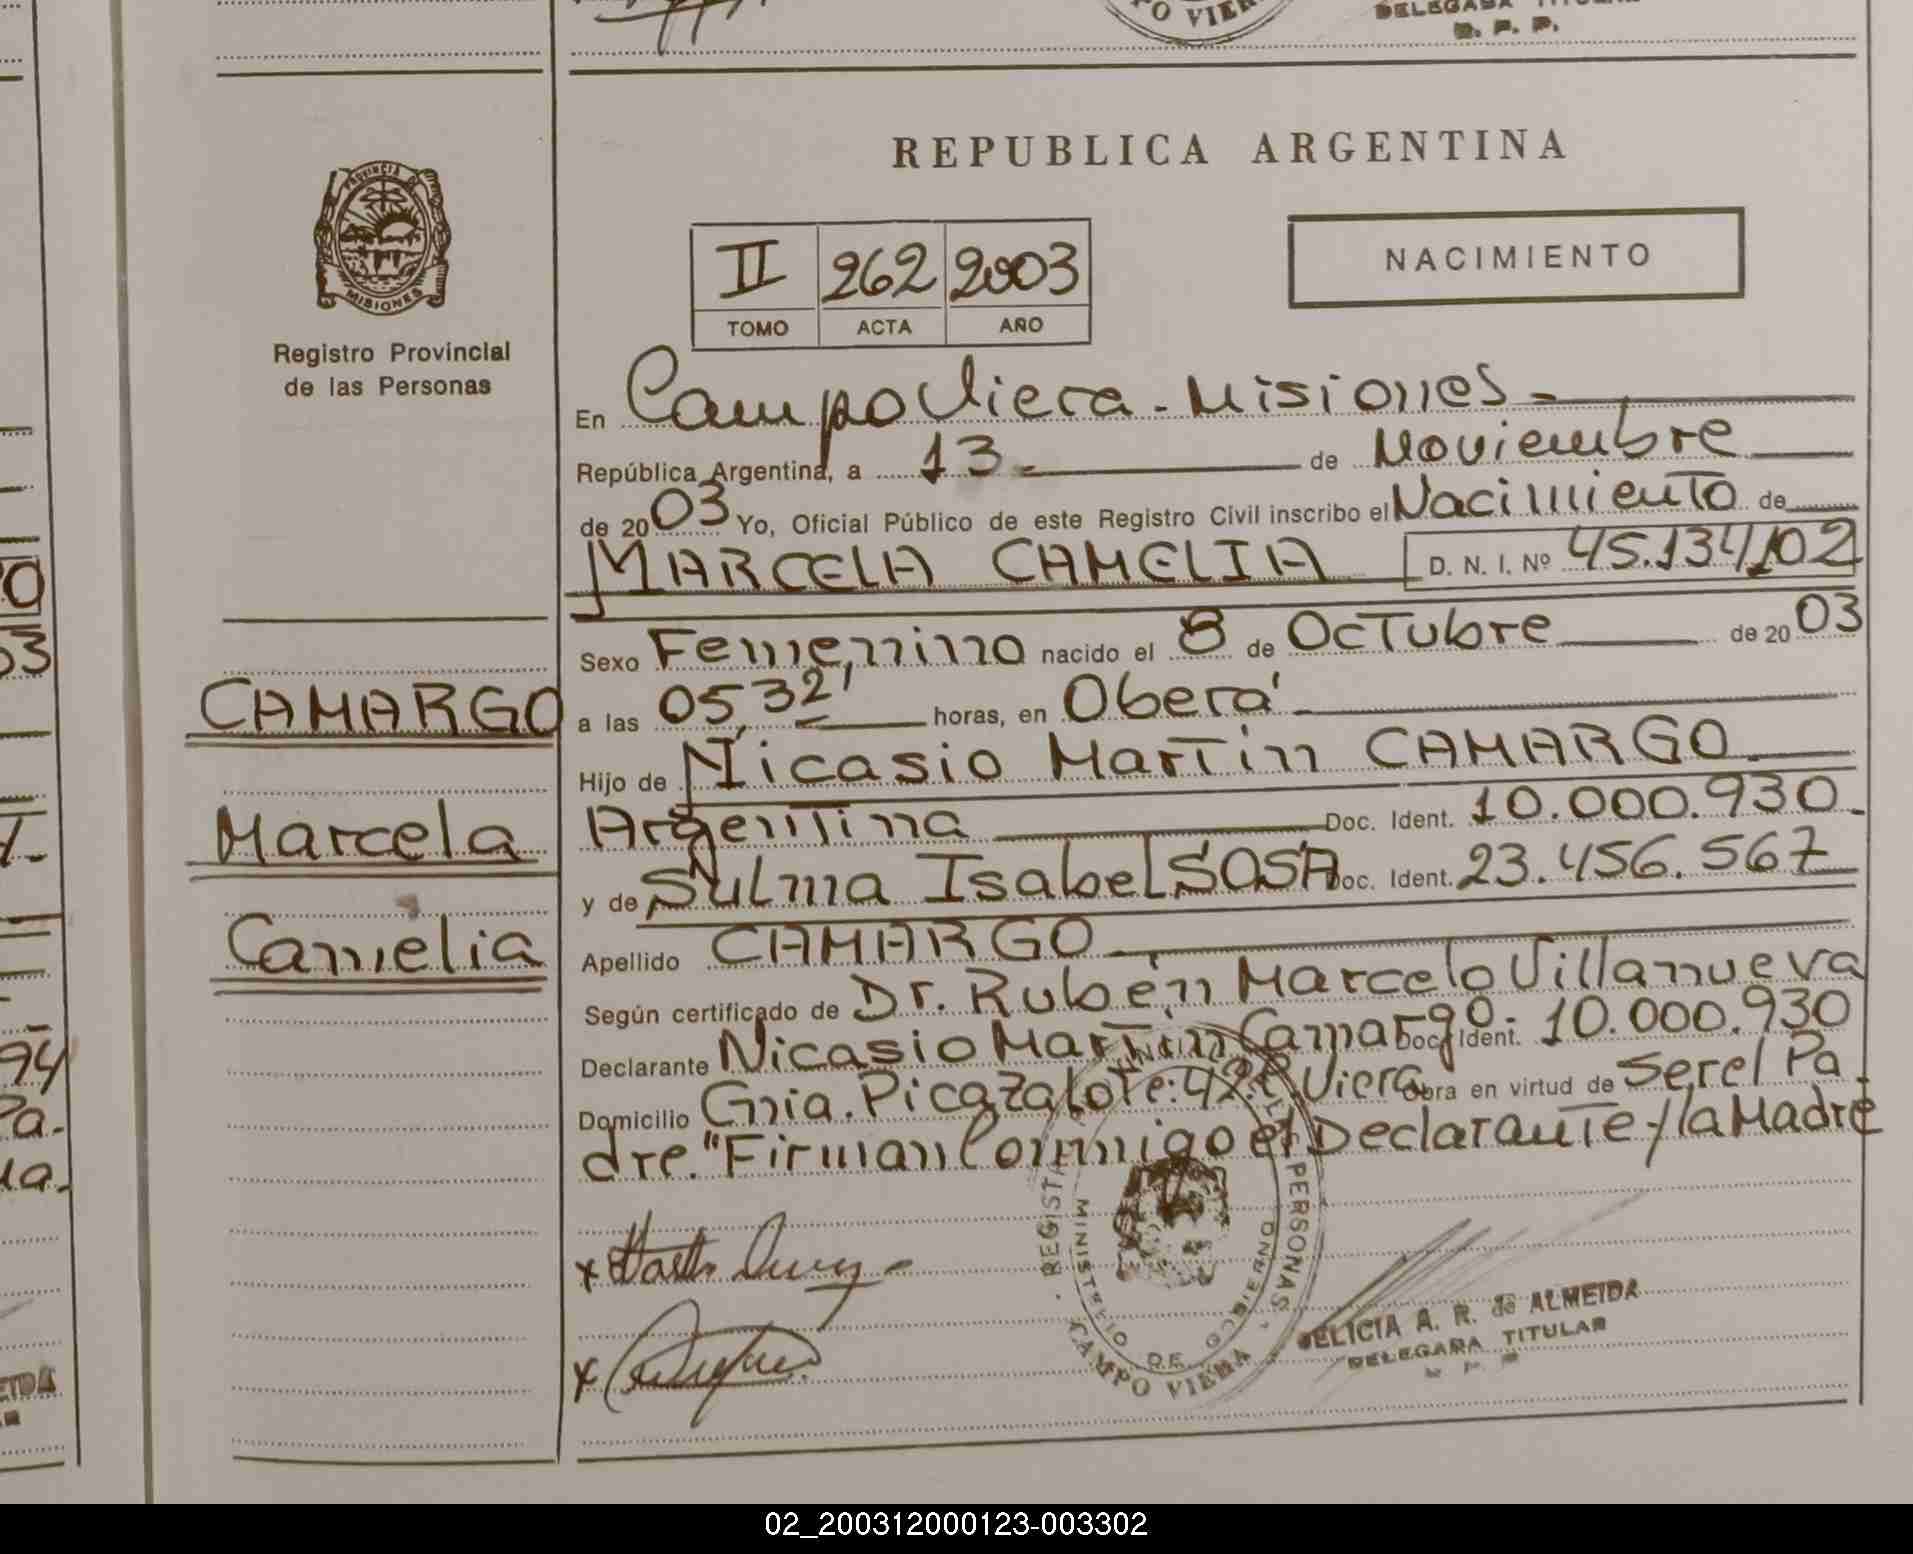 PO VIER
DELEGADA TITULAR
D. P. P.
REPUBLICA ARGENTINA
PROVINCIA DE
MISIONES
Registro Provincial
de las Personas
II 262 2003
TOMO ACTA AÑO
NACIMIENTO
En Campo Viera - Misiones -
República Argentina, a 13 - de Noviembre
de 2003 Yo, Oficial Público de este Registro Civil inscribo el Nacimiento de
MARCELA CAMELIA D. N. I. Nº 45.134.102
Sexo Femenino nacido el 8 de Octubre de 2003
a las 05,32' horas, en Oberá
Hijo de Nicasio Martin CAMARGO
Argentina Doc. Ident. 10.000.930
y de Sulma Isabel SOSA Doc. Ident. 23.456.567
Apellido CAMARGO
Según certificado de Dr. Rubén Marcelo Villanueva
Declarante Nicasio Martin Camargo - Doc. Ident. 10.000.930
Domicilio Gnia. Picaza lote: 42.C. Viera Obra en virtud de Ser el Pa
dre. "Firman Conmigo el Declarante y la Madre
CAMARGO
Marcela
Camelia
x
x
REGISTR PERSONAS
MINISTERIO DE GOBIERNO
CAMPO VIERA
FELICIA A. R. de ALMEIDA
DELEGADA TITULAR
02_200312000123-003302